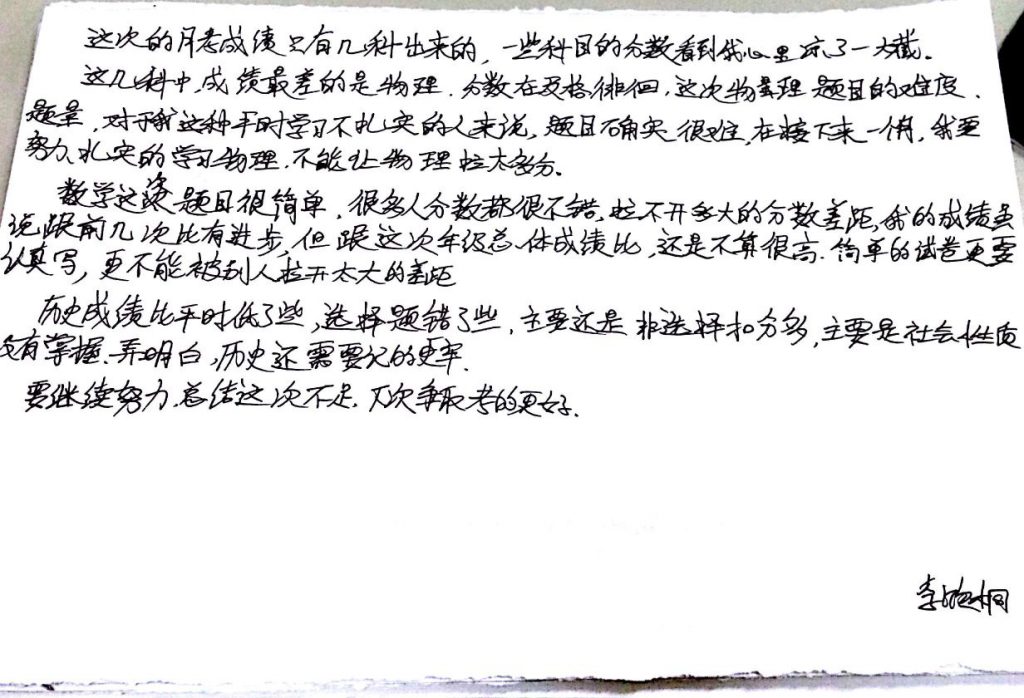 这次的月考成绩只有几科出来的，一些科目的分数看到我心里凉了一大截。
这几科中，成绩最差的是物理，分数在及格徘徊，这次物理题目的难度、
题量，对于我这种平时学习不扎实的人来说，题目确实很难，在接下来一个月，我要
努力、扎实的学习物理，不能让物理拉太多分。
数学这次题目很简单，很多人分数都很不错，拉不开多大的分数差距，我的成绩虽
说跟前几次比有进步，但跟这次年级总体成绩比，还是不算很高。简单的试卷更要
认真写，更不能被别人拉开太大的差距
历史成绩比平时低了些，选择题错了些，主要还是非选择扣分多，主要是社会性质
没有掌握、弄明白，历史还需要记的更牢。
要继续努力，总结这次不足，下次争取考的更好。
李 桐